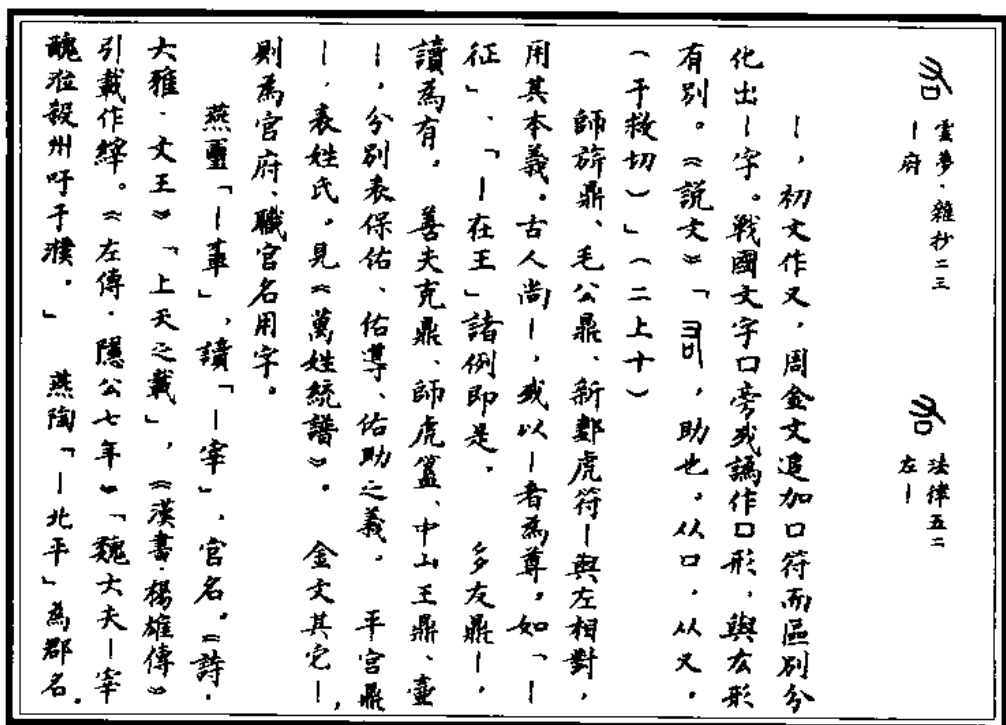 雲夢·雜抄二三
丨府
法律五二
左丨
丨，初文作又，周金文追加口符而區別分
化出丨字。戰國文字口旁或譌作口形，與厷形
有別。《説文》「，助也。从口，从又。
（于救切）」（二上十）
師旂鼎、毛公鼎、新郪虎符丨與左相對，
用其本義。古人尚丨，或以丨者為尊。如「丨
征」、「丨在王」諸例即是。 多友鼎丨，
讀為有。 善夫克鼎、師虎簋、中山王鼎、壺
丨，分別表保佑、佑導、佑助之義。 平宮鼎
丨，表姓氏。見《萬姓統譜》。 金文其它丨，
則為官府、職官名用字。
燕璽「丨」，讀「丨宰」，官名。《詩·
大雅·文王》「上天之載」，《漢書·楊雄傳》
引載作縡。《左傳·隱公七年》「魏大夫丨宰
醜涖殺州吁于濮。」 燕陶「丨北平」為郡名。